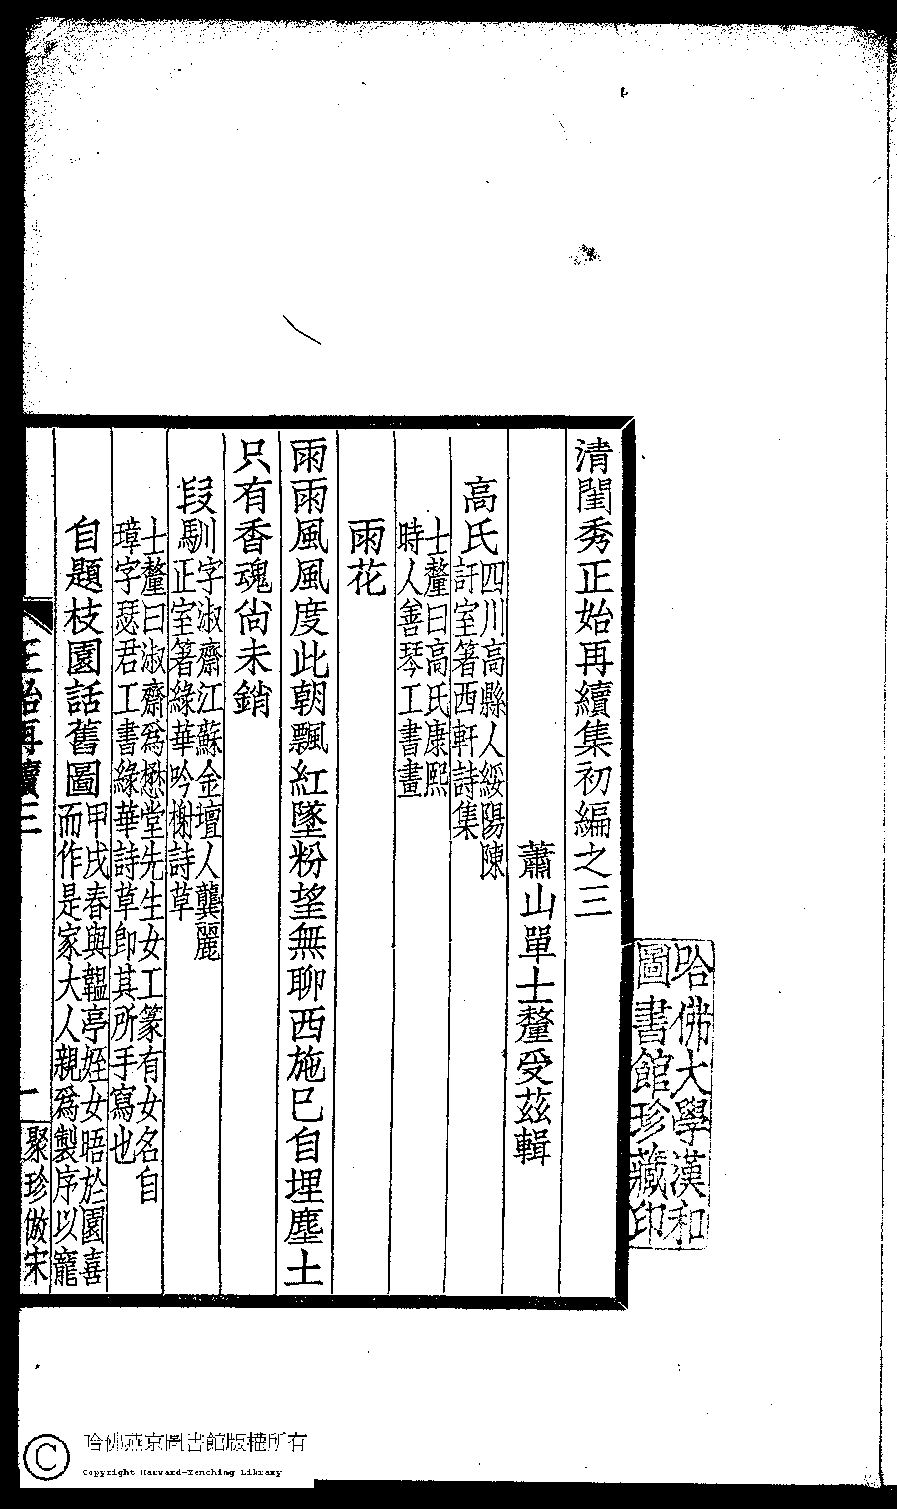 清閨秀正始再續集初編之三
蕭山單士釐受茲輯
高氏
四川高縣人綏陽陳
訐室箸西軒詩集
士釐曰高氏康熙
時人善琴工書畫
雨花
雨雨風風度此朝飄紅墜粉望無聊西施已自埋塵土
只有香魂尙未銷
段馴
字淑齋江蘇金壇人龔麗
正室箸綠華吟榭詩草
士釐曰淑齋爲懋堂先生女工篆有女名自
璋字瑟君工書綠華詩草卽其所手寫也
自題枝園話舊圖
甲戌春與龢亭姪女晤於園喜
而作是家大人親爲製序以寵
正始再續三
一
聚珍倣宋
哈佛大學漢和
圖書館珍藏印
哈佛燕京圖書館版權所有
Copyright Harvard-Yenching Library